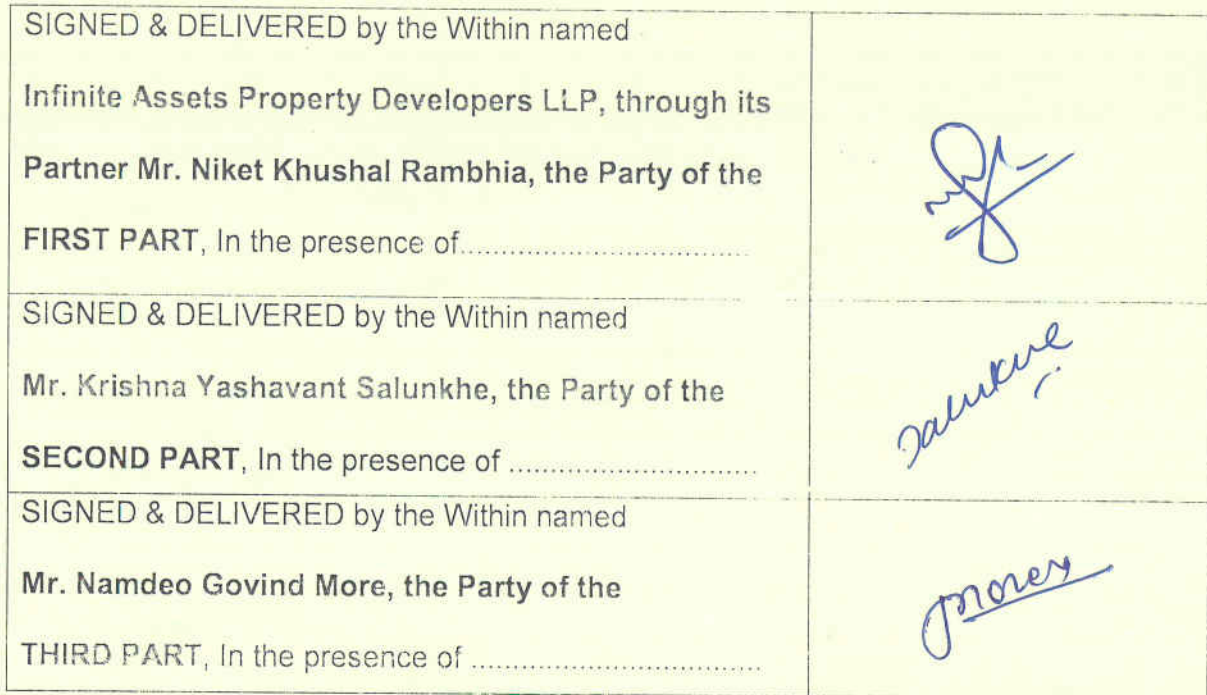 SIGNED & DELIVERED by the Within named
Infinite Assets Property Developers LLP, through its
Partner Mr. Niket Khushal Rambhia, the Party of the
FIRST PART, In the presence of....................................
SIGNED & DELIVERED by the Within named
Mr. Krishna Yashavant Salunkhe, the Party of the
SECOND PART, In the presence of ..............................
Salunkhe
SIGNED & DELIVERED by the Within named
Mr. Namdeo Govind More, the Party of the
THIRD PART, In the presence of ...................................